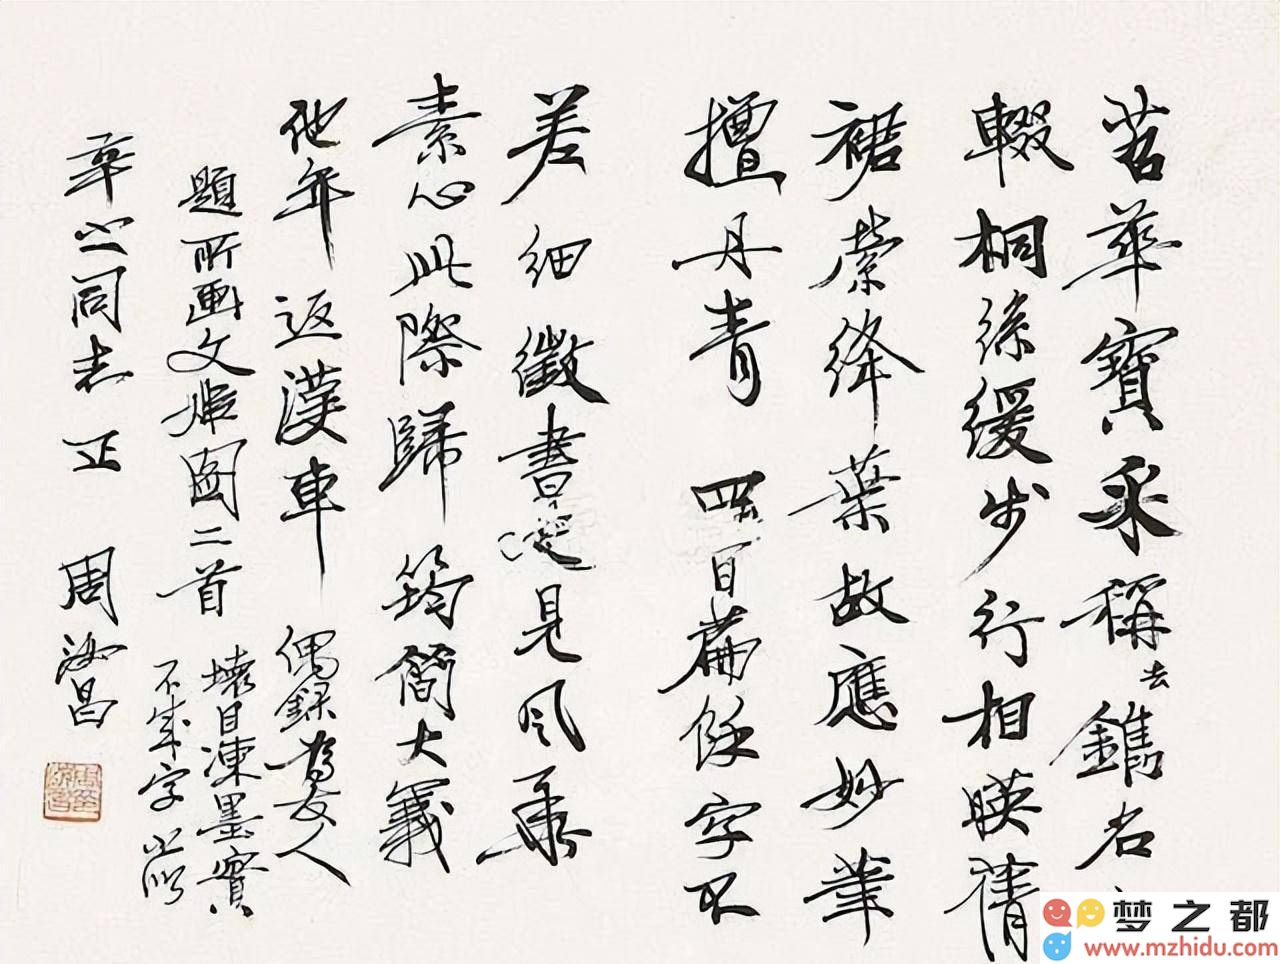 苕華寶采稱去鐫名
輟桐絲緩步行相暎情
裾縈絳葉故應妙筆
擅丹青 四百篇餘字不
差細徵書史見風華
素心此際歸筠簡大義
他年返漢車 偶錄為友人
題所画文姬圖二首 壞目凍墨實
不成字
同志正 周汝昌
梦之都
www.mzhidu.com